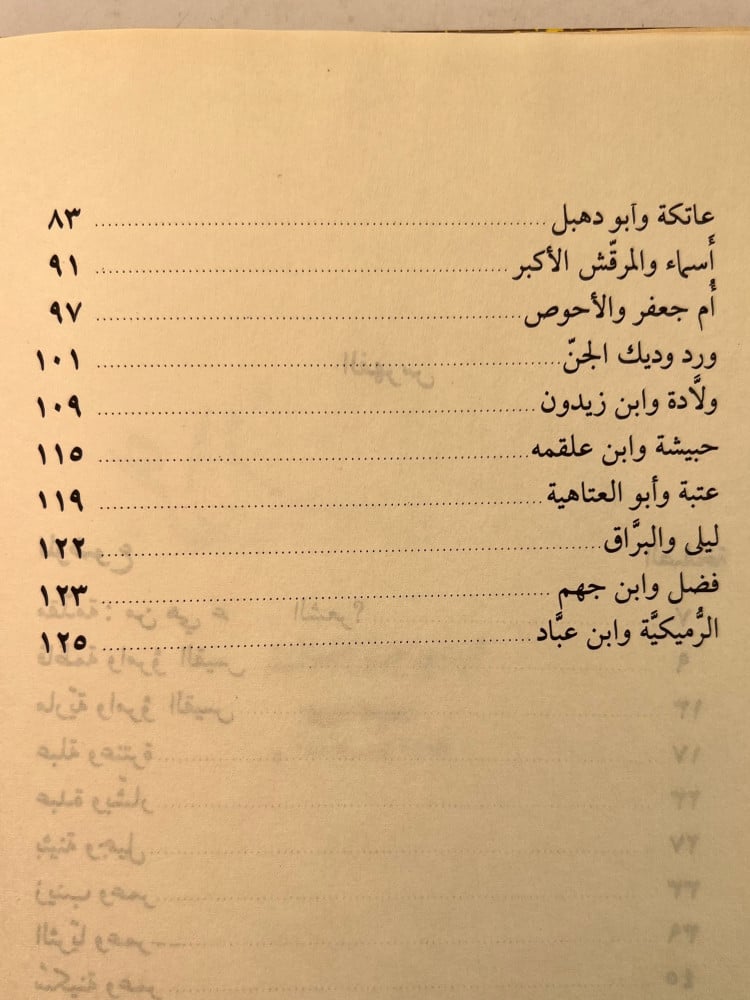 عاتكة وأبو دهبل ........ ٨٣
أَسماء والمرقّش الأكبر ........ ٩١
أُم جعفر والأحوص ........ ٩٧
ورد وديك الجنّ ........ ١٠١
ولاَّدة وابن زيدون ........ ١٠٩
حبيشة وابن علقمه ........ ١١٥
عتبة وأبو العتاهية ........ ١١٩
ليلى والبرَّاق ........ ١٢٢
فضل وابن جهم ........ ١٢٣
الرُّميكيَّة وابن عبَّاد ........ ١٢٥